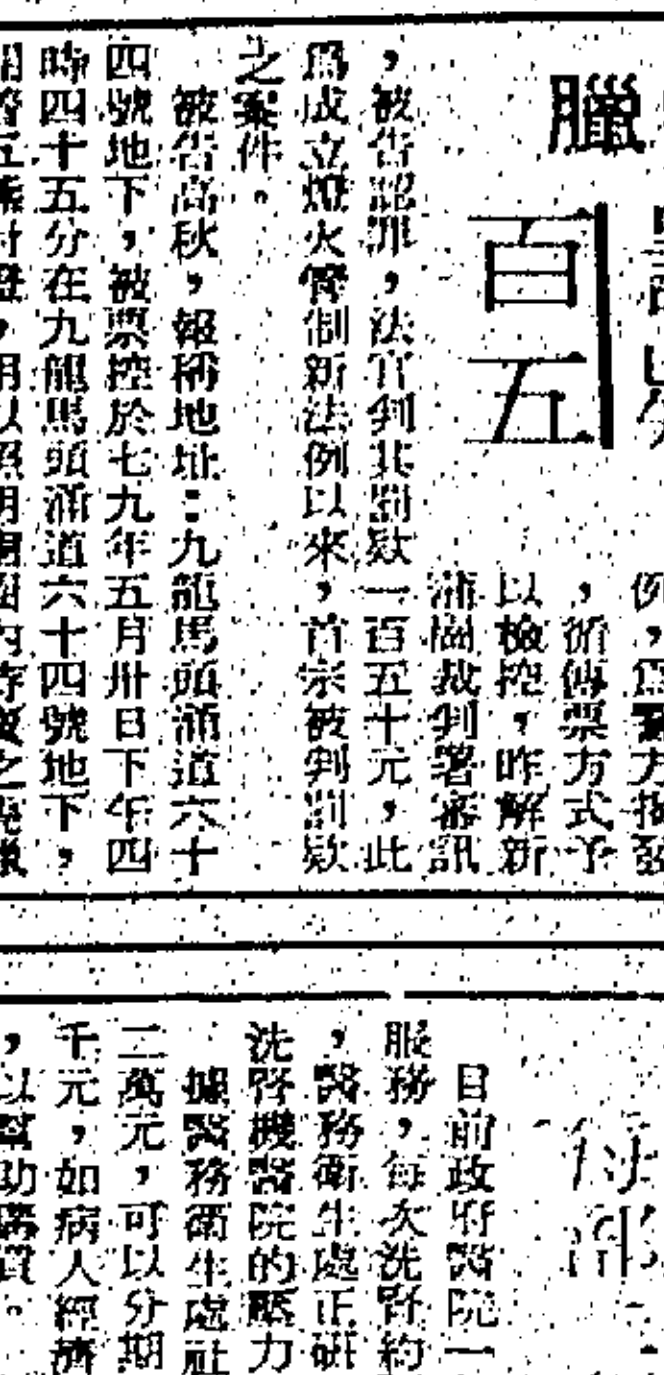 臘
百五
例，為警方揭發
，循傳票方式予
以檢控，昨解新
蒲崗裁判署審訊
，被告認罪，法官判其罰欵一百五十元，此
為成立燈火管制新法例以來，首宗被判罰欵
之案件。
被告高秋，報稱地址：九龍馬頭涌道六十
四號地下，被票控於七九年五月卅日下午四
時四十五分在九龍馬頭涌道六十四號地下，
目前政府醫院一
服務，每次洗腎約
，醫務衛生處正研
洗腎機醫院的壓力
據醫務衛生處社
二萬元，可以分期
千元，如病人經濟
，以幫助購買。